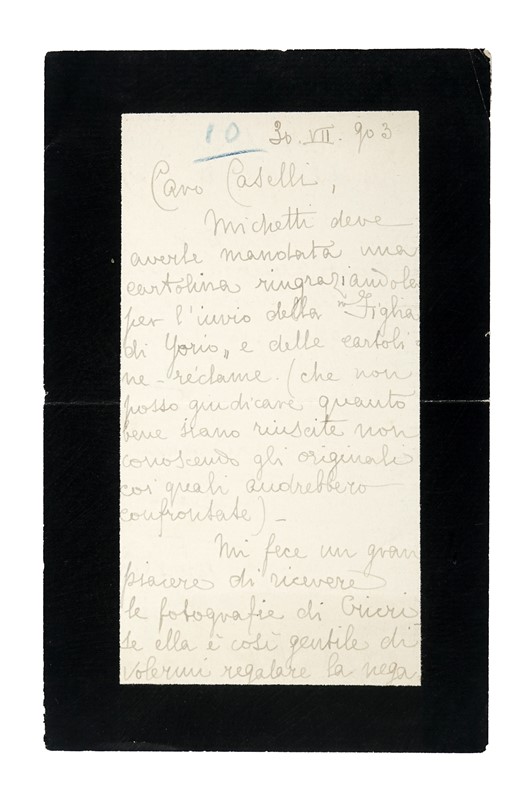 10 30. VII. 903
Caro Caselli,
Michetti deve
averle mandata una
cartolina ringraziandole
per l'invio della "Figlia
di Yorio„ e delle cartoli
ne-réclame. (che non
posso giudicare quanto
bene siano riuscite non
conoscendo gli originali
coi quali andrebbero
confrontate) _
Mi fece un gran
piacere di ricevere
le fotografie di Cricri
se ella è così gentile di
volermi regalare la nega